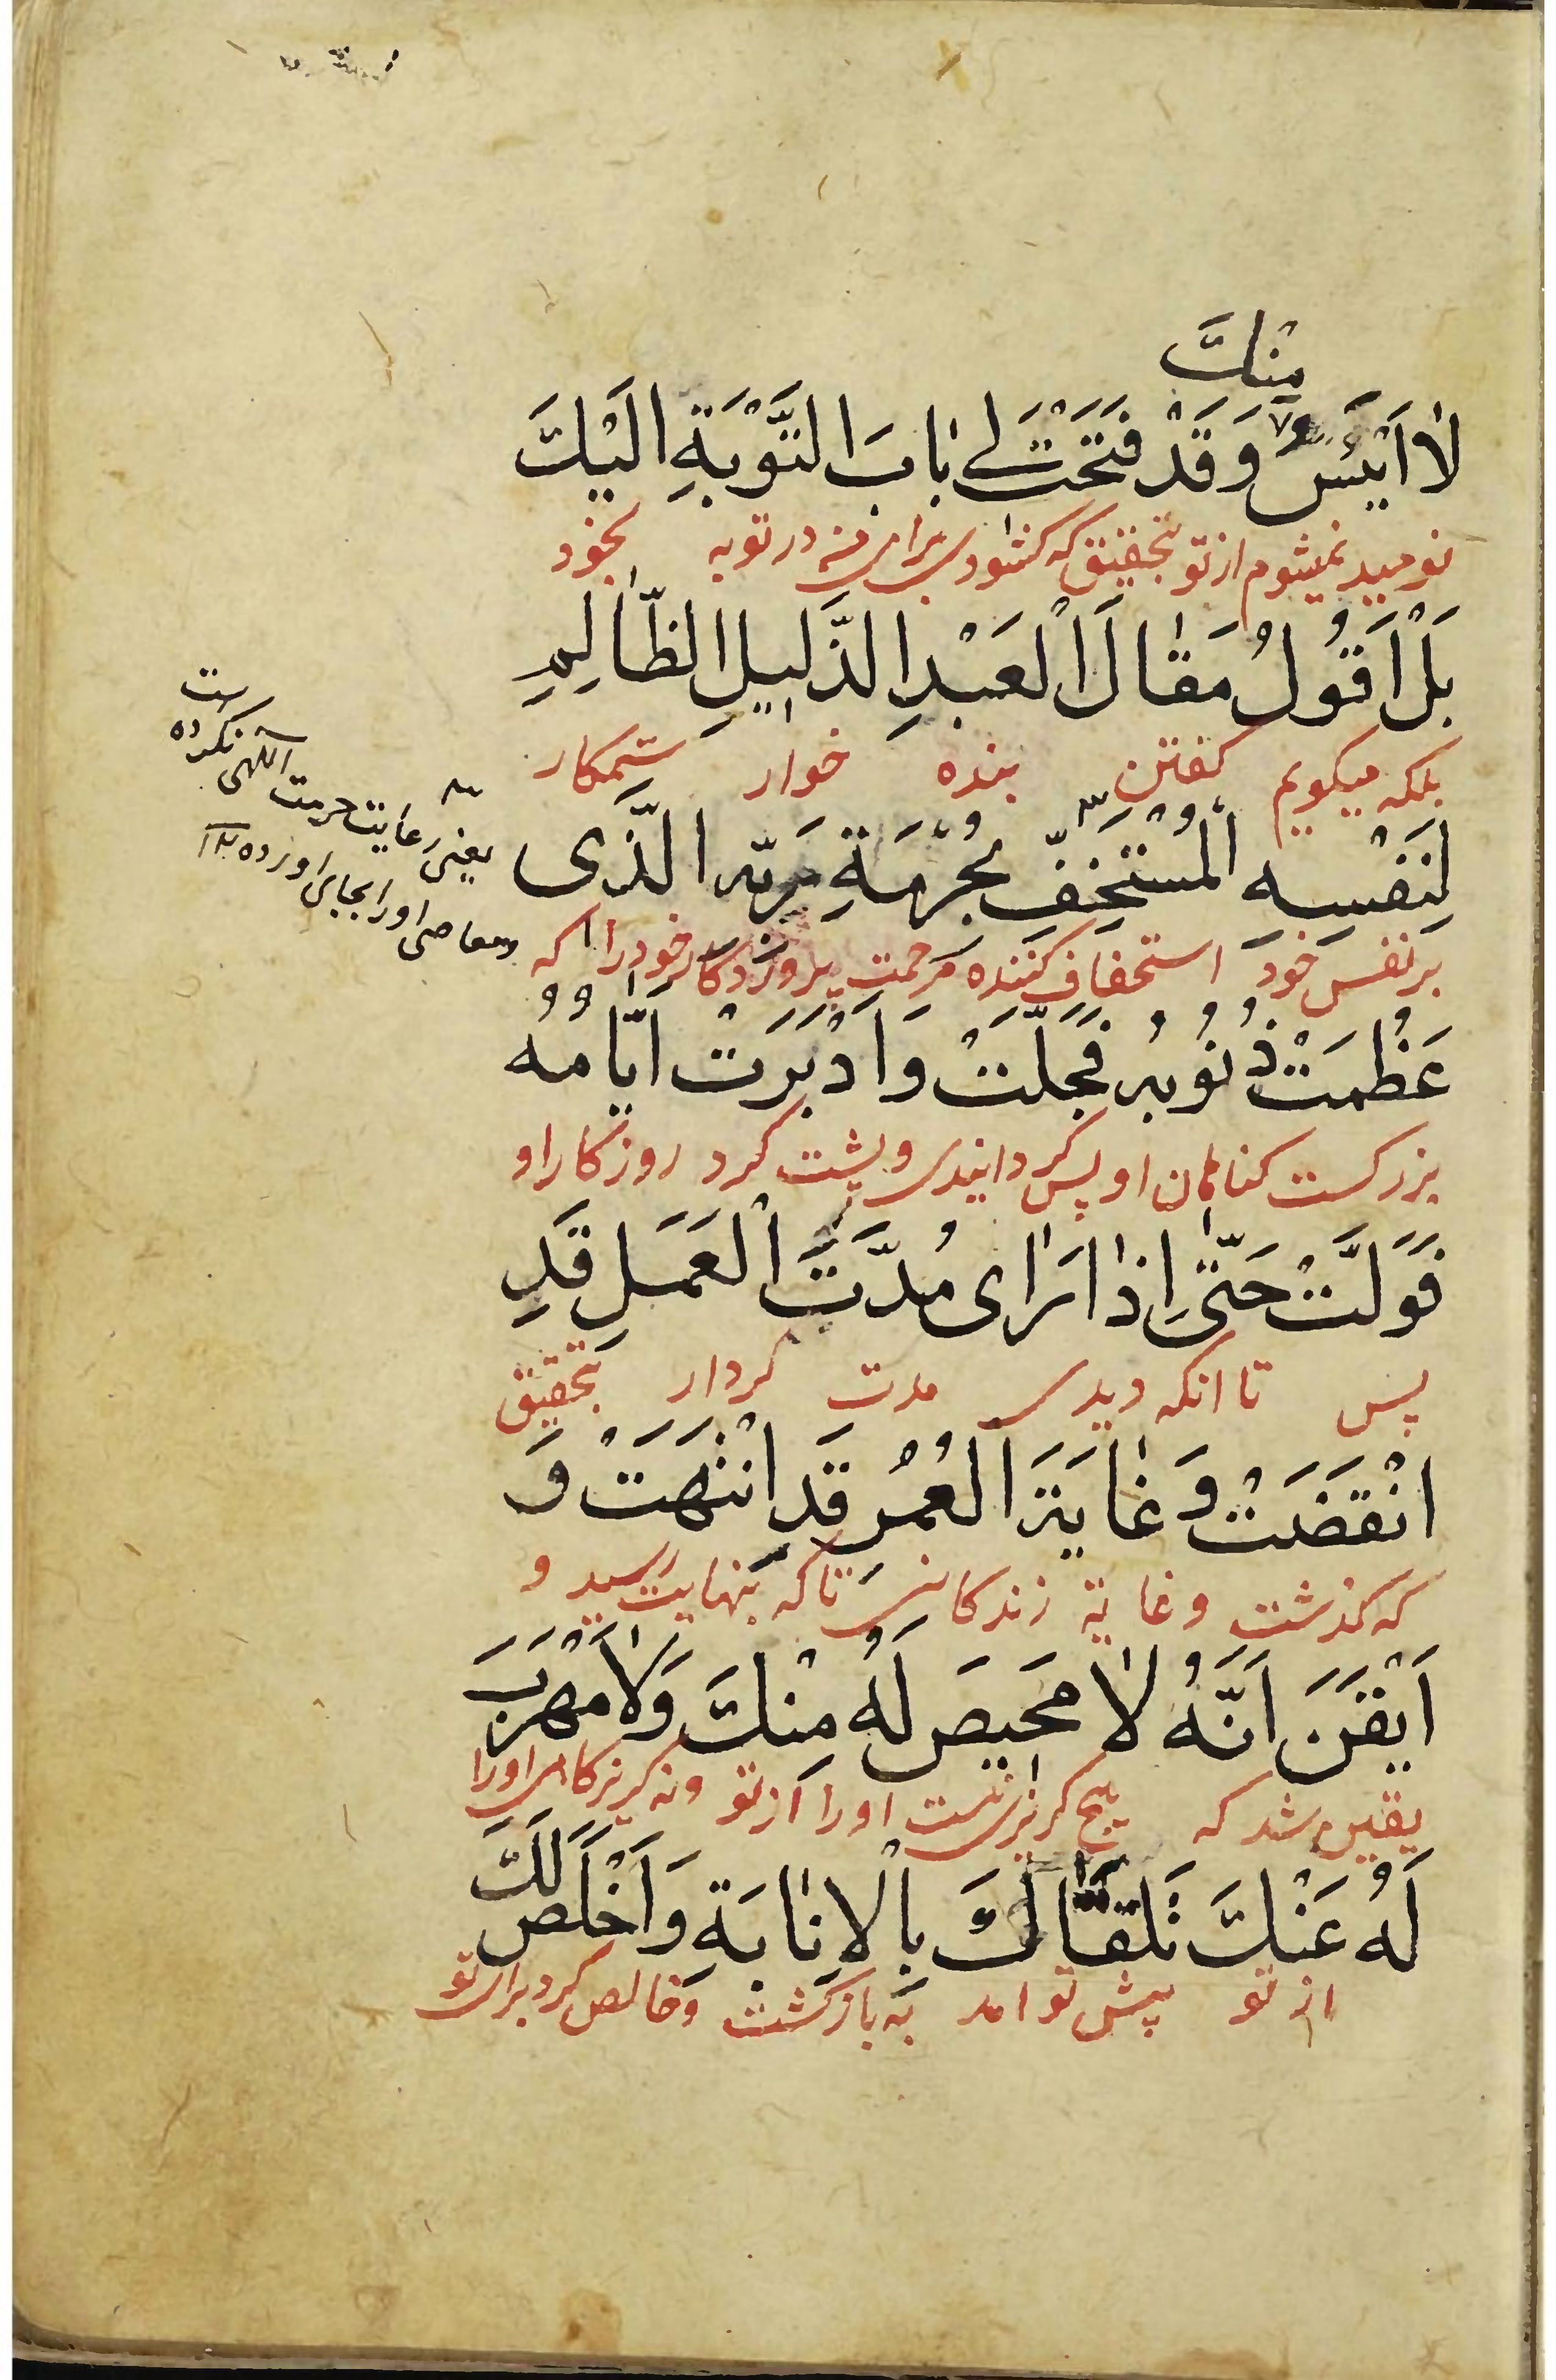 مِنْكَ
لَا اَيْئَسُ وَقَدْ فَتَحْتَ لِي بَابَ التَّوْبَةِ اِلَيْكَ
نوميد نميشوم از تو بتحقيق كه كشودى براى من در توبه بخود
بَلْ اَقُولُ مَقَالَ الْعَبْدِ الذَّلِيلِ الظَّالِمِ
بلكه ميكويم كفتن بنده خوار ستمكار
لِنَفْسِهِ الْمُسْتَخِفِّ بِحُرْمَةِ رَبِّهِ الَّذِى
بر نفس خود استخفاف كننده مرحمت پروردكار خود را كه
عَظُمَتْ ذُنُوبُهُ فَجَلَّتْ وَاَدْبَرَتْ اَيَّامُهُ
بزركست كناهان او پس كردانيدى و پشت كرد روزكار او
فَوَلَّتْ حَتَّى اِذَا رَاى مُدَّتَ الْعَمَلِ قَدِ
پس تا انكه ديدى مدت كردار بتحقيق
انْقَضَتْ وَغَايَةَ الْعُمُرِ قَدِ انْتَهَتْ وَ
كه كذشت و غاية زندكانى تا كه بنهايت رسيد و
اَيْقَنَ اَنَّهُ لَا مَحِيصَ لَهُ مِنْكَ وَلَا مَهْرَبَ
يقين شد كه هيچ كريزى نيست او را از تو و نه كريزكاهى او را
لَهُ عَنْكَ تَلَقَّاكَ بِالْاِنَابَةِ وَاَخْلَصَ لَكَ
از تو پيش تو امد به بازكشت و خالص كرد براى تو
يعنى رعايت حرمت الهى نكرده است
و معاصى او را بجاى اورده ١٢